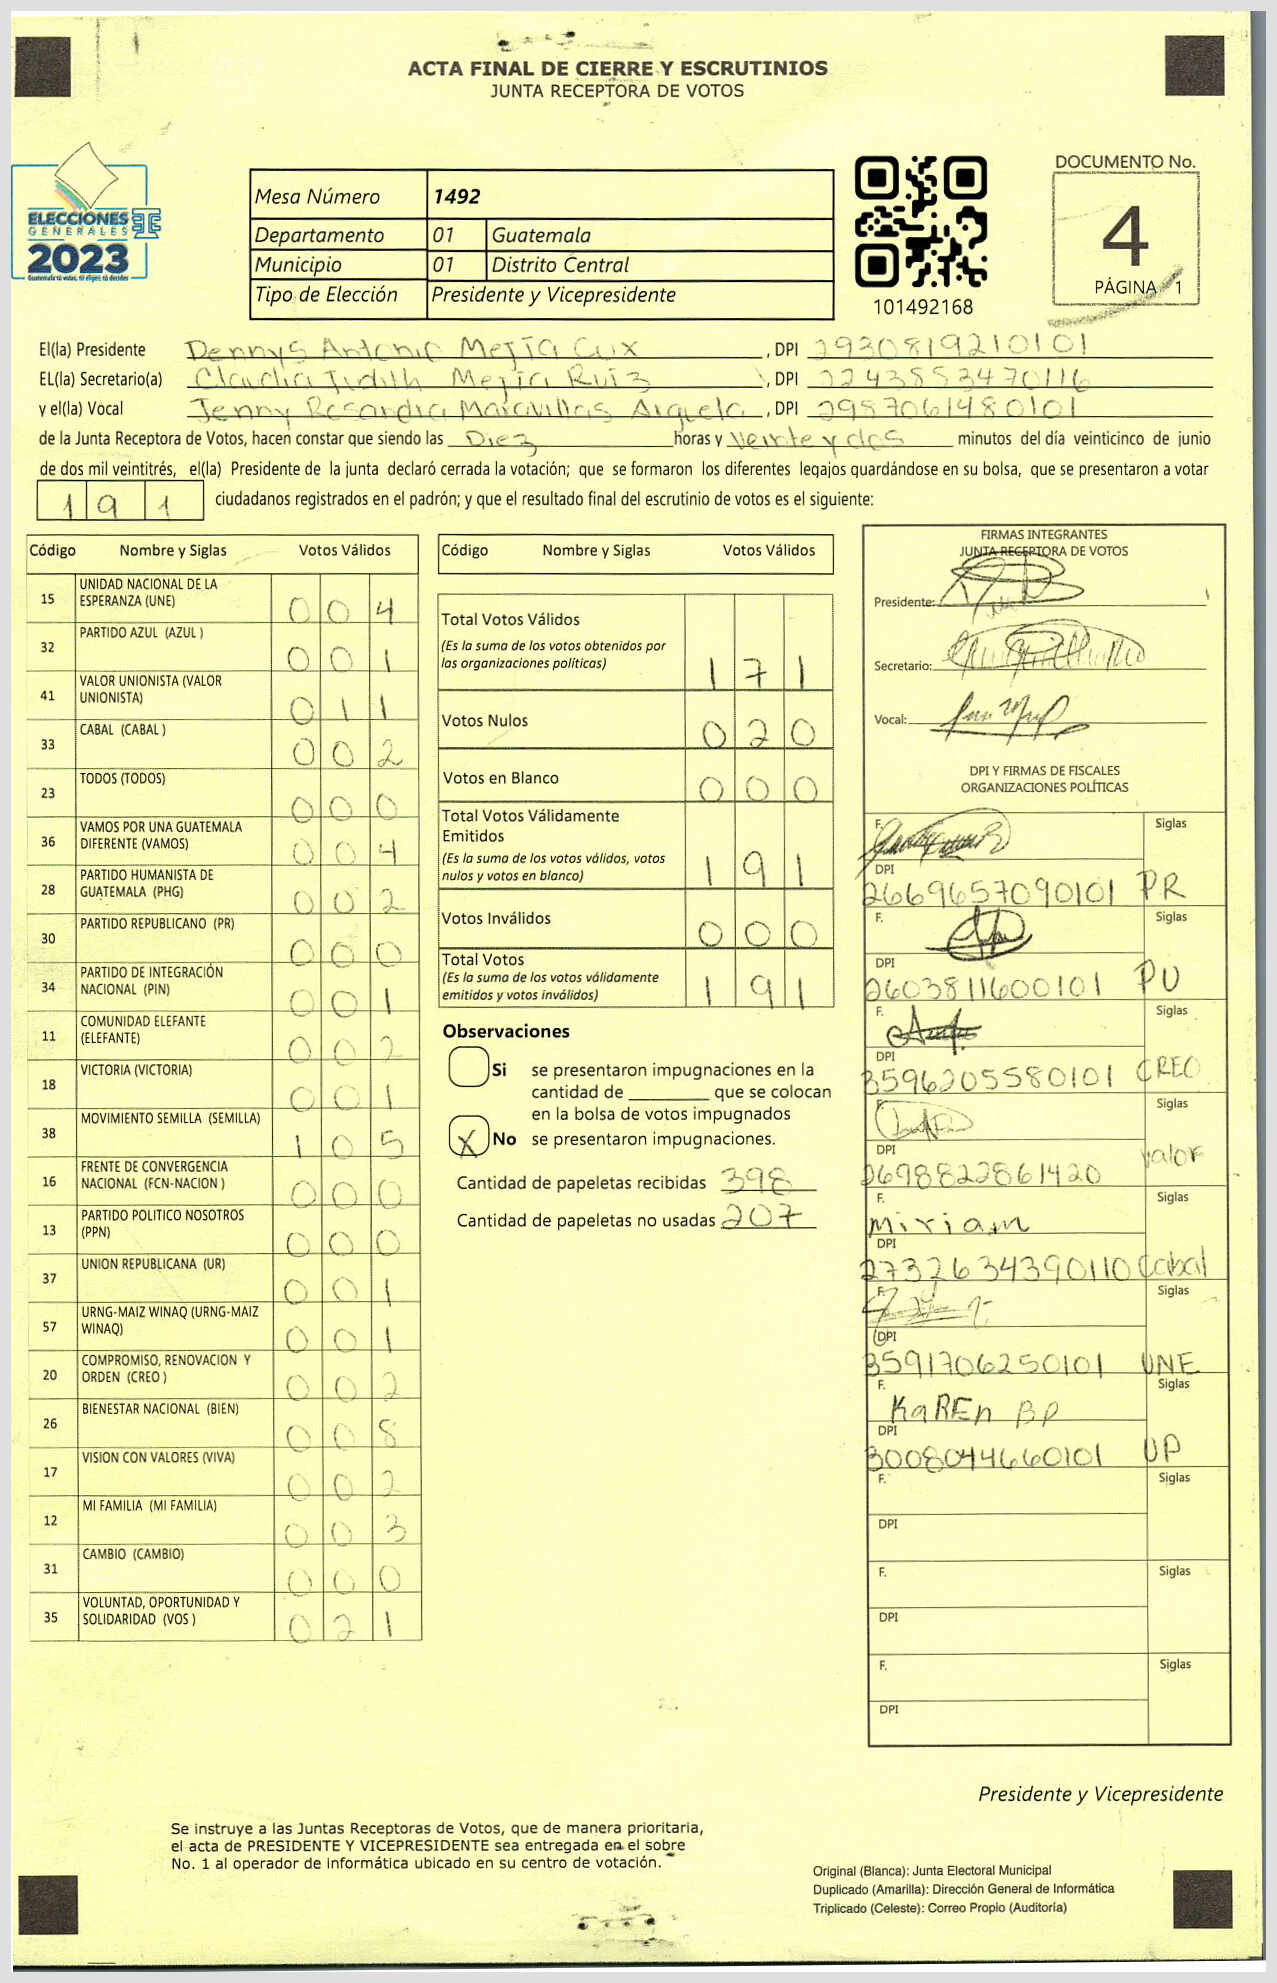 ACTA FINAL DE CIERRE Y ESCRUTINIOS
JUNTA RECEPTORA DE VOTOS
ELECCIONES
GENERALES
2023
Guatemala tú votas, tú eliges, tú decides
Mesa Número 1492
Departamento 01 Guatemala
Municipio 01 Distrito Central
Tipo de Elección Presidente y Vicepresidente
101492168
DOCUMENTO No.
4
PÁGINA 1
El(la) Presidente Dennys Antonio Mejía Cux, DPI 2930819210101
EL(la) Secretario(a) Claudia Judith Mejía Ruiz, DPI 2243853470116
y el(la) Vocal Jenny Rosandra Maravillas Argueta, DPI 2957061480101
de la Junta Receptora de Votos, hacen constar que siendo las Diez horas y Veinte y dos minutos del día veinticinco de junio
de dos mil veintitrés, el(la) Presidente de la junta declaró cerrada la votación; que se formaron los diferentes legajos guardándose en su bolsa, que se presentaron a votar
191 ciudadanos registrados en el padrón; y que el resultado final del escrutinio de votos es el siguiente:
Código Nombre y Siglas Votos Válidos
15 UNIDAD NACIONAL DE LA ESPERANZA (UNE) 004
32 PARTIDO AZUL (AZUL ) 001
41 VALOR UNIONISTA (VALOR UNIONISTA) 011
33 CABAL (CABAL ) 002
23 TODOS (TODOS) 000
36 VAMOS POR UNA GUATEMALA DIFERENTE (VAMOS) 004
28 PARTIDO HUMANISTA DE GUATEMALA (PHG) 002
30 PARTIDO REPUBLICANO (PR) 000
34 PARTIDO DE INTEGRACIÓN NACIONAL (PIN) 001
11 COMUNIDAD ELEFANTE (ELEFANTE) 002
18 VICTORIA (VICTORIA) 001
38 MOVIMIENTO SEMILLA (SEMILLA) 105
16 FRENTE DE CONVERGENCIA NACIONAL (FCN-NACION ) 000
13 PARTIDO POLITICO NOSOTROS (PPN) 000
37 UNION REPUBLICANA (UR) 001
57 URNG-MAIZ WINAQ (URNG-MAIZ WINAQ) 001
20 COMPROMISO, RENOVACION Y ORDEN (CREO ) 002
26 BIENESTAR NACIONAL (BIEN) 008
17 VISION CON VALORES (VIVA) 002
12 MI FAMILIA (MI FAMILIA) 003
31 CAMBIO (CAMBIO) 000
35 VOLUNTAD, OPORTUNIDAD Y SOLIDARIDAD (VOS ) 021
Código Nombre y Siglas Votos Válidos
Total Votos Válidos
(Es la suma de los votos obtenidos por las organizaciones políticas) 171
Votos Nulos 020
Votos en Blanco 000
Total Votos Válidamente Emitidos
(Es la suma de los votos válidos, votos nulos y votos en blanco) 191
Votos Inválidos 000
Total Votos
(Es la suma de los votos válidamente emitidos y votos inválidos) 191
Observaciones
Si se presentaron impugnaciones en la
cantidad de ________ que se colocan
en la bolsa de votos impugnados
X No se presentaron impugnaciones.
Cantidad de papeletas recibidas 398
Cantidad de papeletas no usadas 207
FIRMAS INTEGRANTES
JUNTA RECEPTORA DE VOTOS
Presidente:
Secretario:
Vocal:
DPI Y FIRMAS DE FISCALES
ORGANIZACIONES POLÍTICAS
F. Siglas
DPI
2669657090101 PR
F. Siglas
DPI
2603811600101 PU
F. Siglas
DPI
3596205580101 CREO
F. Siglas
DPI
2698822861420 Valor
F. Siglas
Miriam
DPI
2732634390110 Cabal
F. Siglas
DPI
3591706250101 UNE
F. Siglas
KaREn BP
DPI
3008044660101 UP
F. Siglas
DPI
F. Siglas
DPI
F. Siglas
DPI
Presidente y Vicepresidente
Se instruye a las Juntas Receptoras de Votos, que de manera prioritaria,
el acta de PRESIDENTE Y VICEPRESIDENTE sea entregada en el sobre
No. 1 al operador de informática ubicado en su centro de votación.
Original (Blanca): Junta Electoral Municipal
Duplicado (Amarilla): Dirección General de Informática
Triplicado (Celeste): Correo Propio (Auditoría)